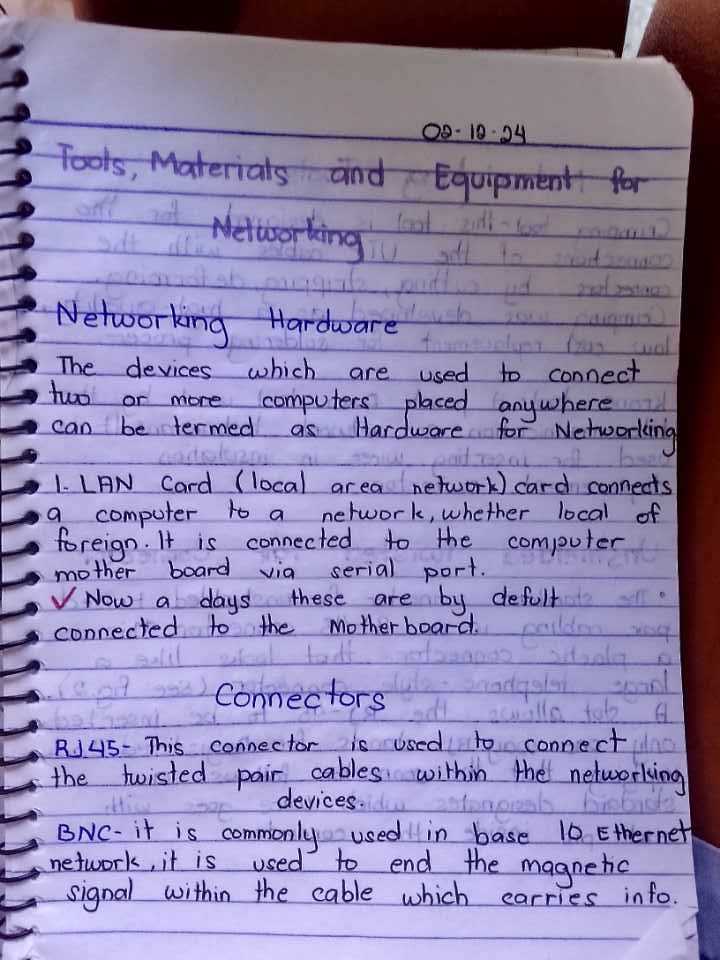 02-12-24
Tools, Materials and Equipment for
Networking
Networking Hardware
The devices which are used to connect
two or more computers placed anywhere
can be termed as Hardware for Networking
1. LAN Card (local area network) card connects
a computer to a network, whether local of
foreign. It is connected to the computer
mother board via serial port.
✓ Now a days these are by defult
connected to the Mother board.
Connectors
RJ45- This connector is used to connect
the twisted pair cables within the networking
devices.
BNC- it is commonly used in base 10 Ethernet
network, it is used to end the magnetic
signal within the cable which carries info.